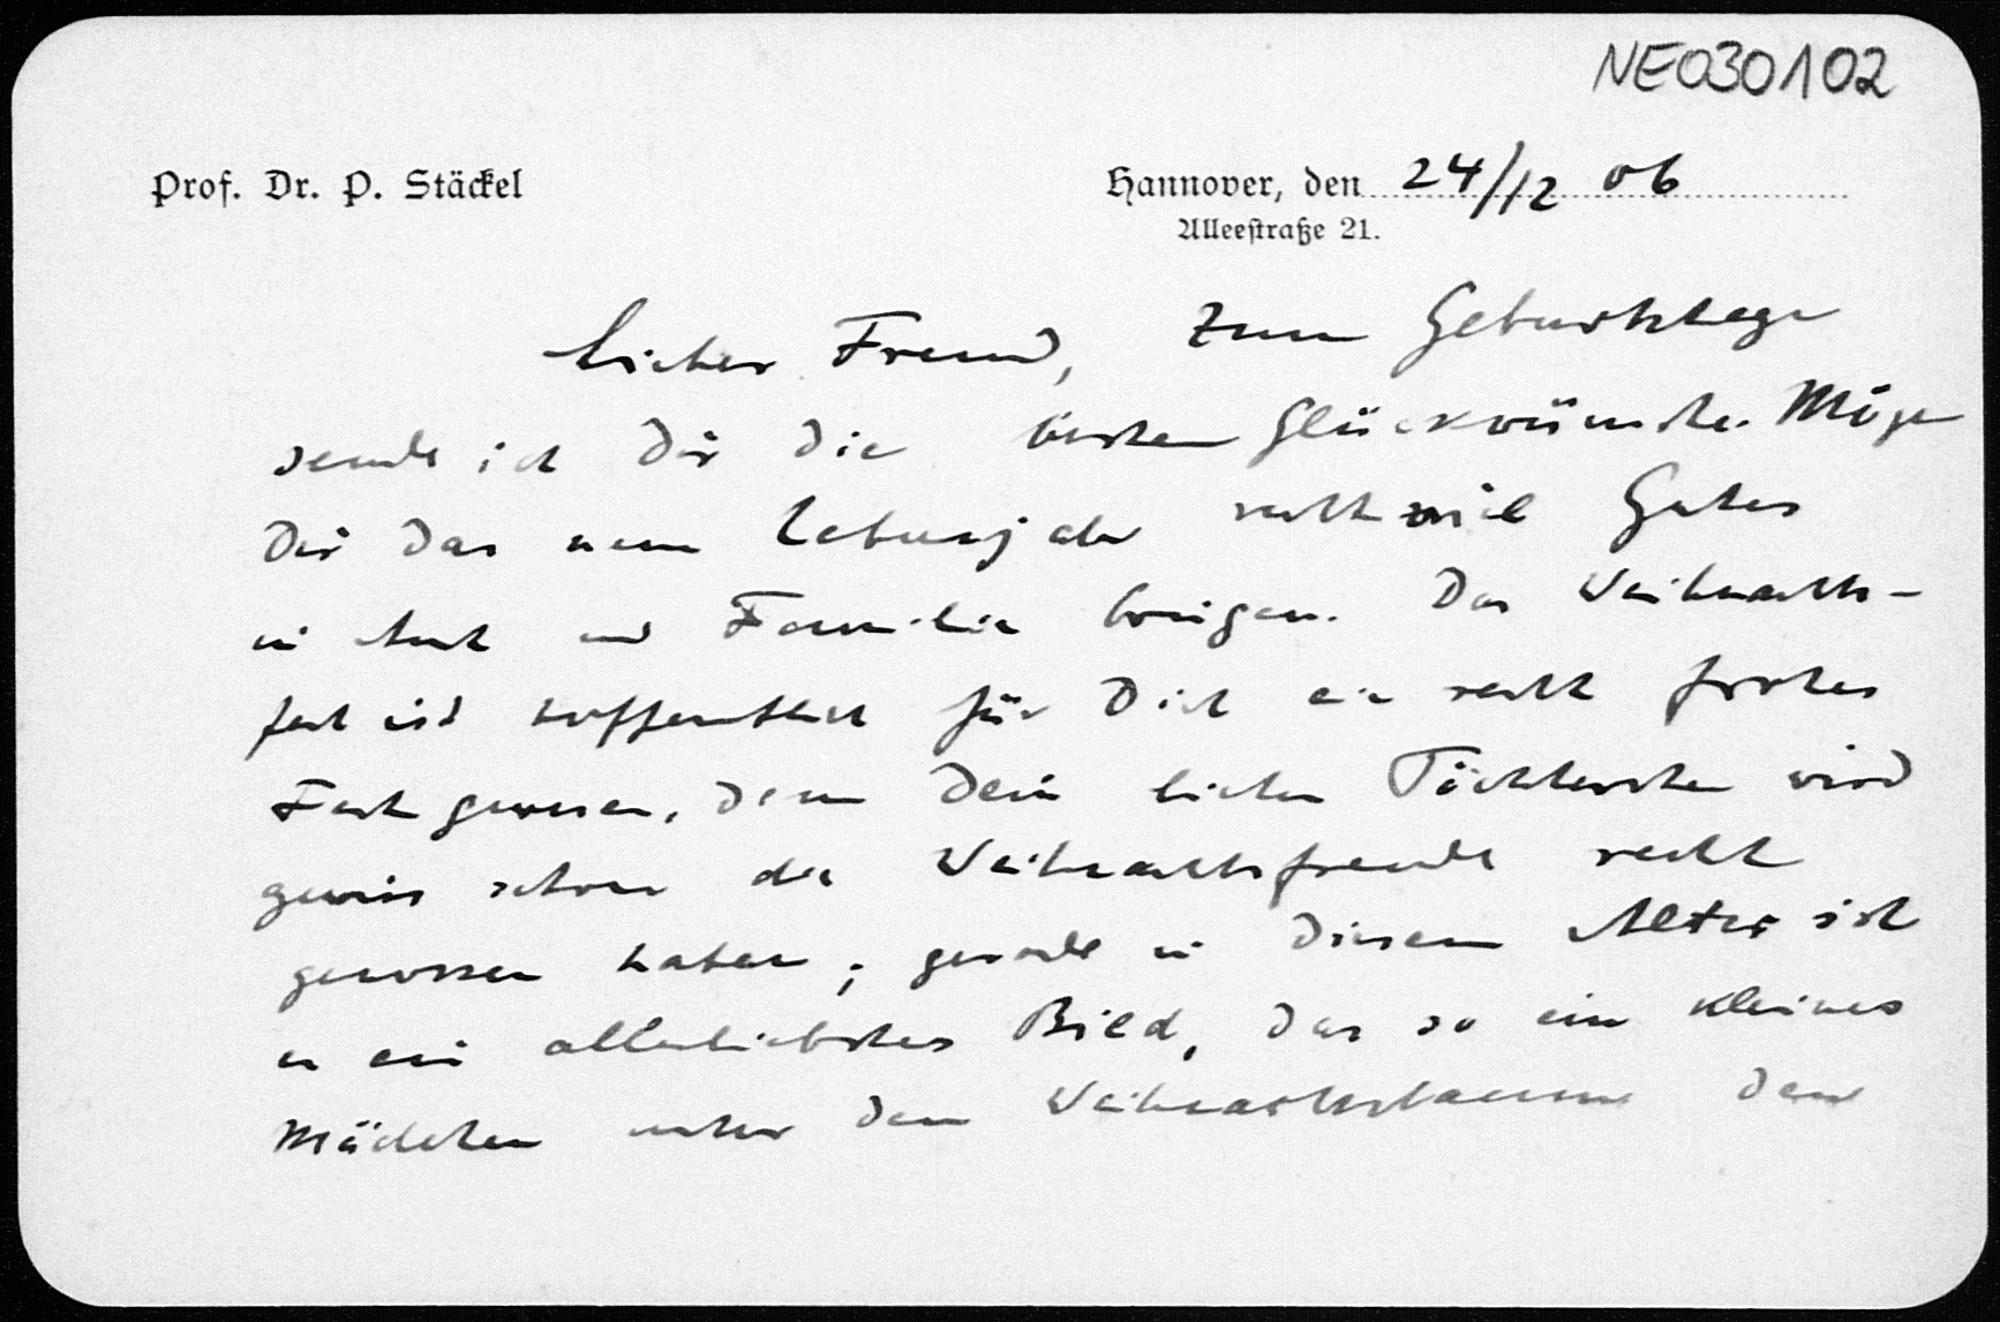 NE030102
Prof. Dr. P. Stäckel
Hannover, den 24/12 06
Alleestraße 21.
Lieber Freund, Zum Geburtstage
sende ich Dir die besten Glückwünsche. Möge
Dir das neue Lebensjahr recht viel Gutes
in Amt und Familie bringen. Das Weihnachts-
fest ist hoffentlich für Dich ein recht frohes
Fest gewesen, denn Dein liebes Töchterchen wird
gewiss schon die Weihnachtsfreude recht
genossen haben; gerade in diesem Alter ist
es ein allerliebstes Bild, das so ein kleines
Mädchen unter dem Weihnachtsbaume